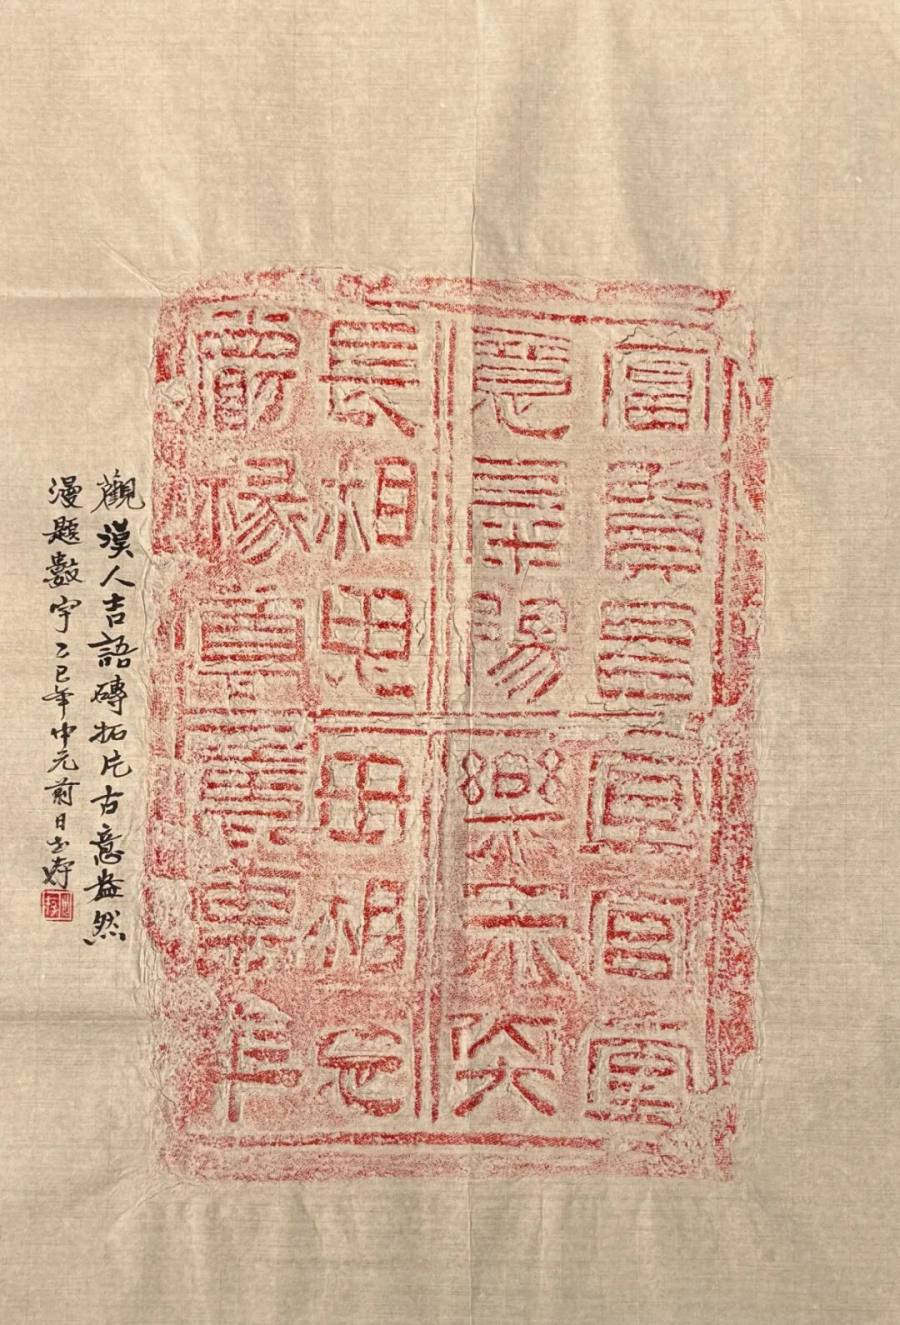 富貴昌宜宮堂
意氣陽樂未央
長相思毋相忘
爵祿尊壽萬年
觀漢人吉語磚拓片古意盎然
漫題數字乙巳年中元前日